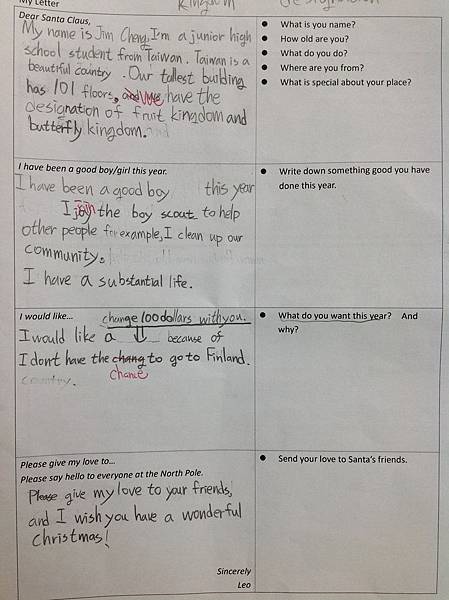 My Letter
kingdom designation
Dear Santa Claus,
My name is Jim Cheng, I'm a junior high
school student from Taiwan. Taiwan is a
beautiful country. Our tallest building
has 101 floors, and we have the
designation of fruit kingdom and
butterfly kingdom.
● What is you name?
● How old are you?
● What do you do?
● Where are you from?
● What is special about your place?
I have been a good boy/girl this year.
I have been a good boy this year
I join the boy scout to help
other people for example, I clean up our
community.
I have a substantial life.
● Write down something good you have
done this year.
I would like...
change 100 dollars with you.
I would like a ⇓ because of
I don't have the chang to go to Finland.
chance
country.
● What do you want this year? And
why?
Please give my love to...
Please say hello to everyone at the North Pole.
Please give my love to your friends,
and I wish you have a wonderful
christmas!
Sincerely
Leo
● Send your love to Santa's friends.